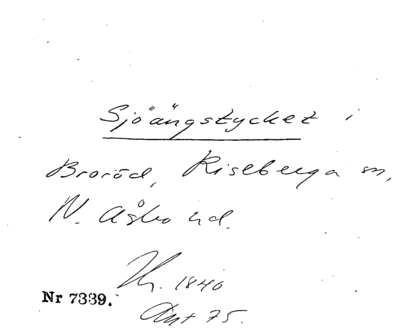 Sjöängstycket i
Broröd, Riseberga sn,
N. Åsbo hd.
1840
Nr 7339.
Ant 75.